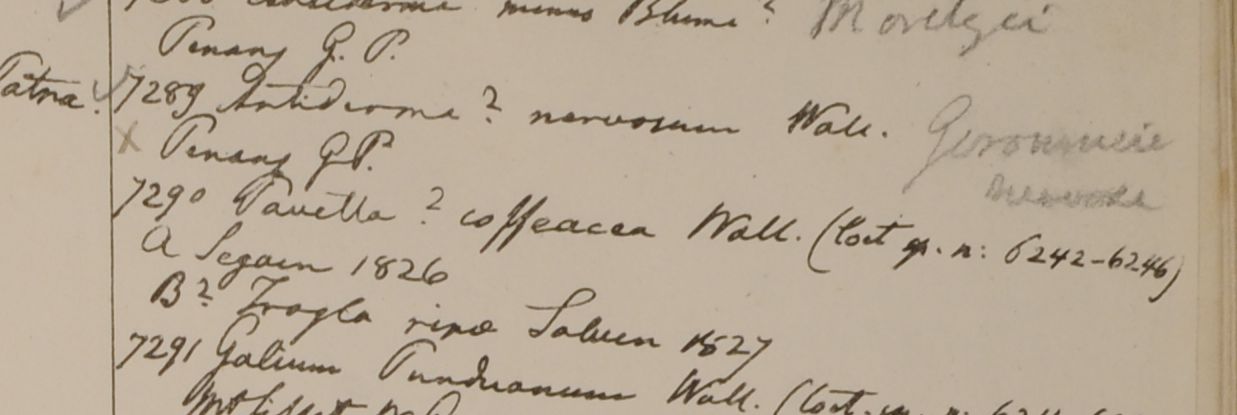 minus Blume? Moritzei
Penang G. P.
Patna. 7289 Antiderma? nervosum Wall. Geronniera
nervosa
X Penang G P.
7290 Pavetta? coffeacea Wall. (Cat. n: 6242-6246)
A Segain 1826
B? Trogla ripæ Saluen 1827
7291 Galium Punduanum Wall.